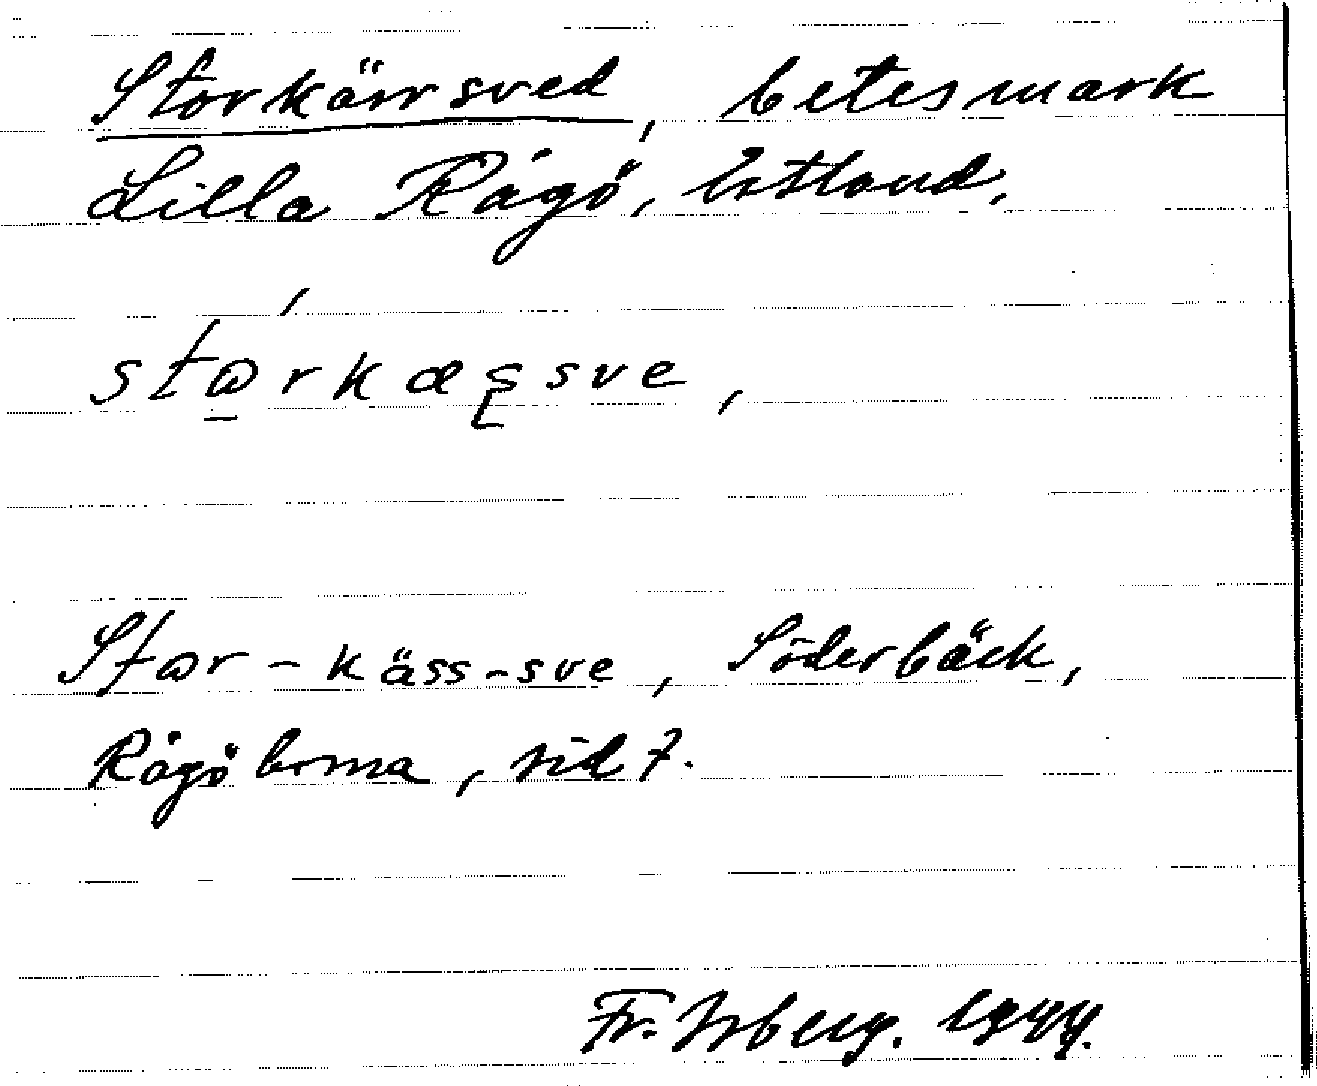 Storkärrsved, betesmark
Lilla Rågö, Estland.
stꞷ̠́rkæʂsve,
Stꞷr-käss-sve, Söderbäck,
Rågöborna, sid 7.
Fr. Isberg. 1944.